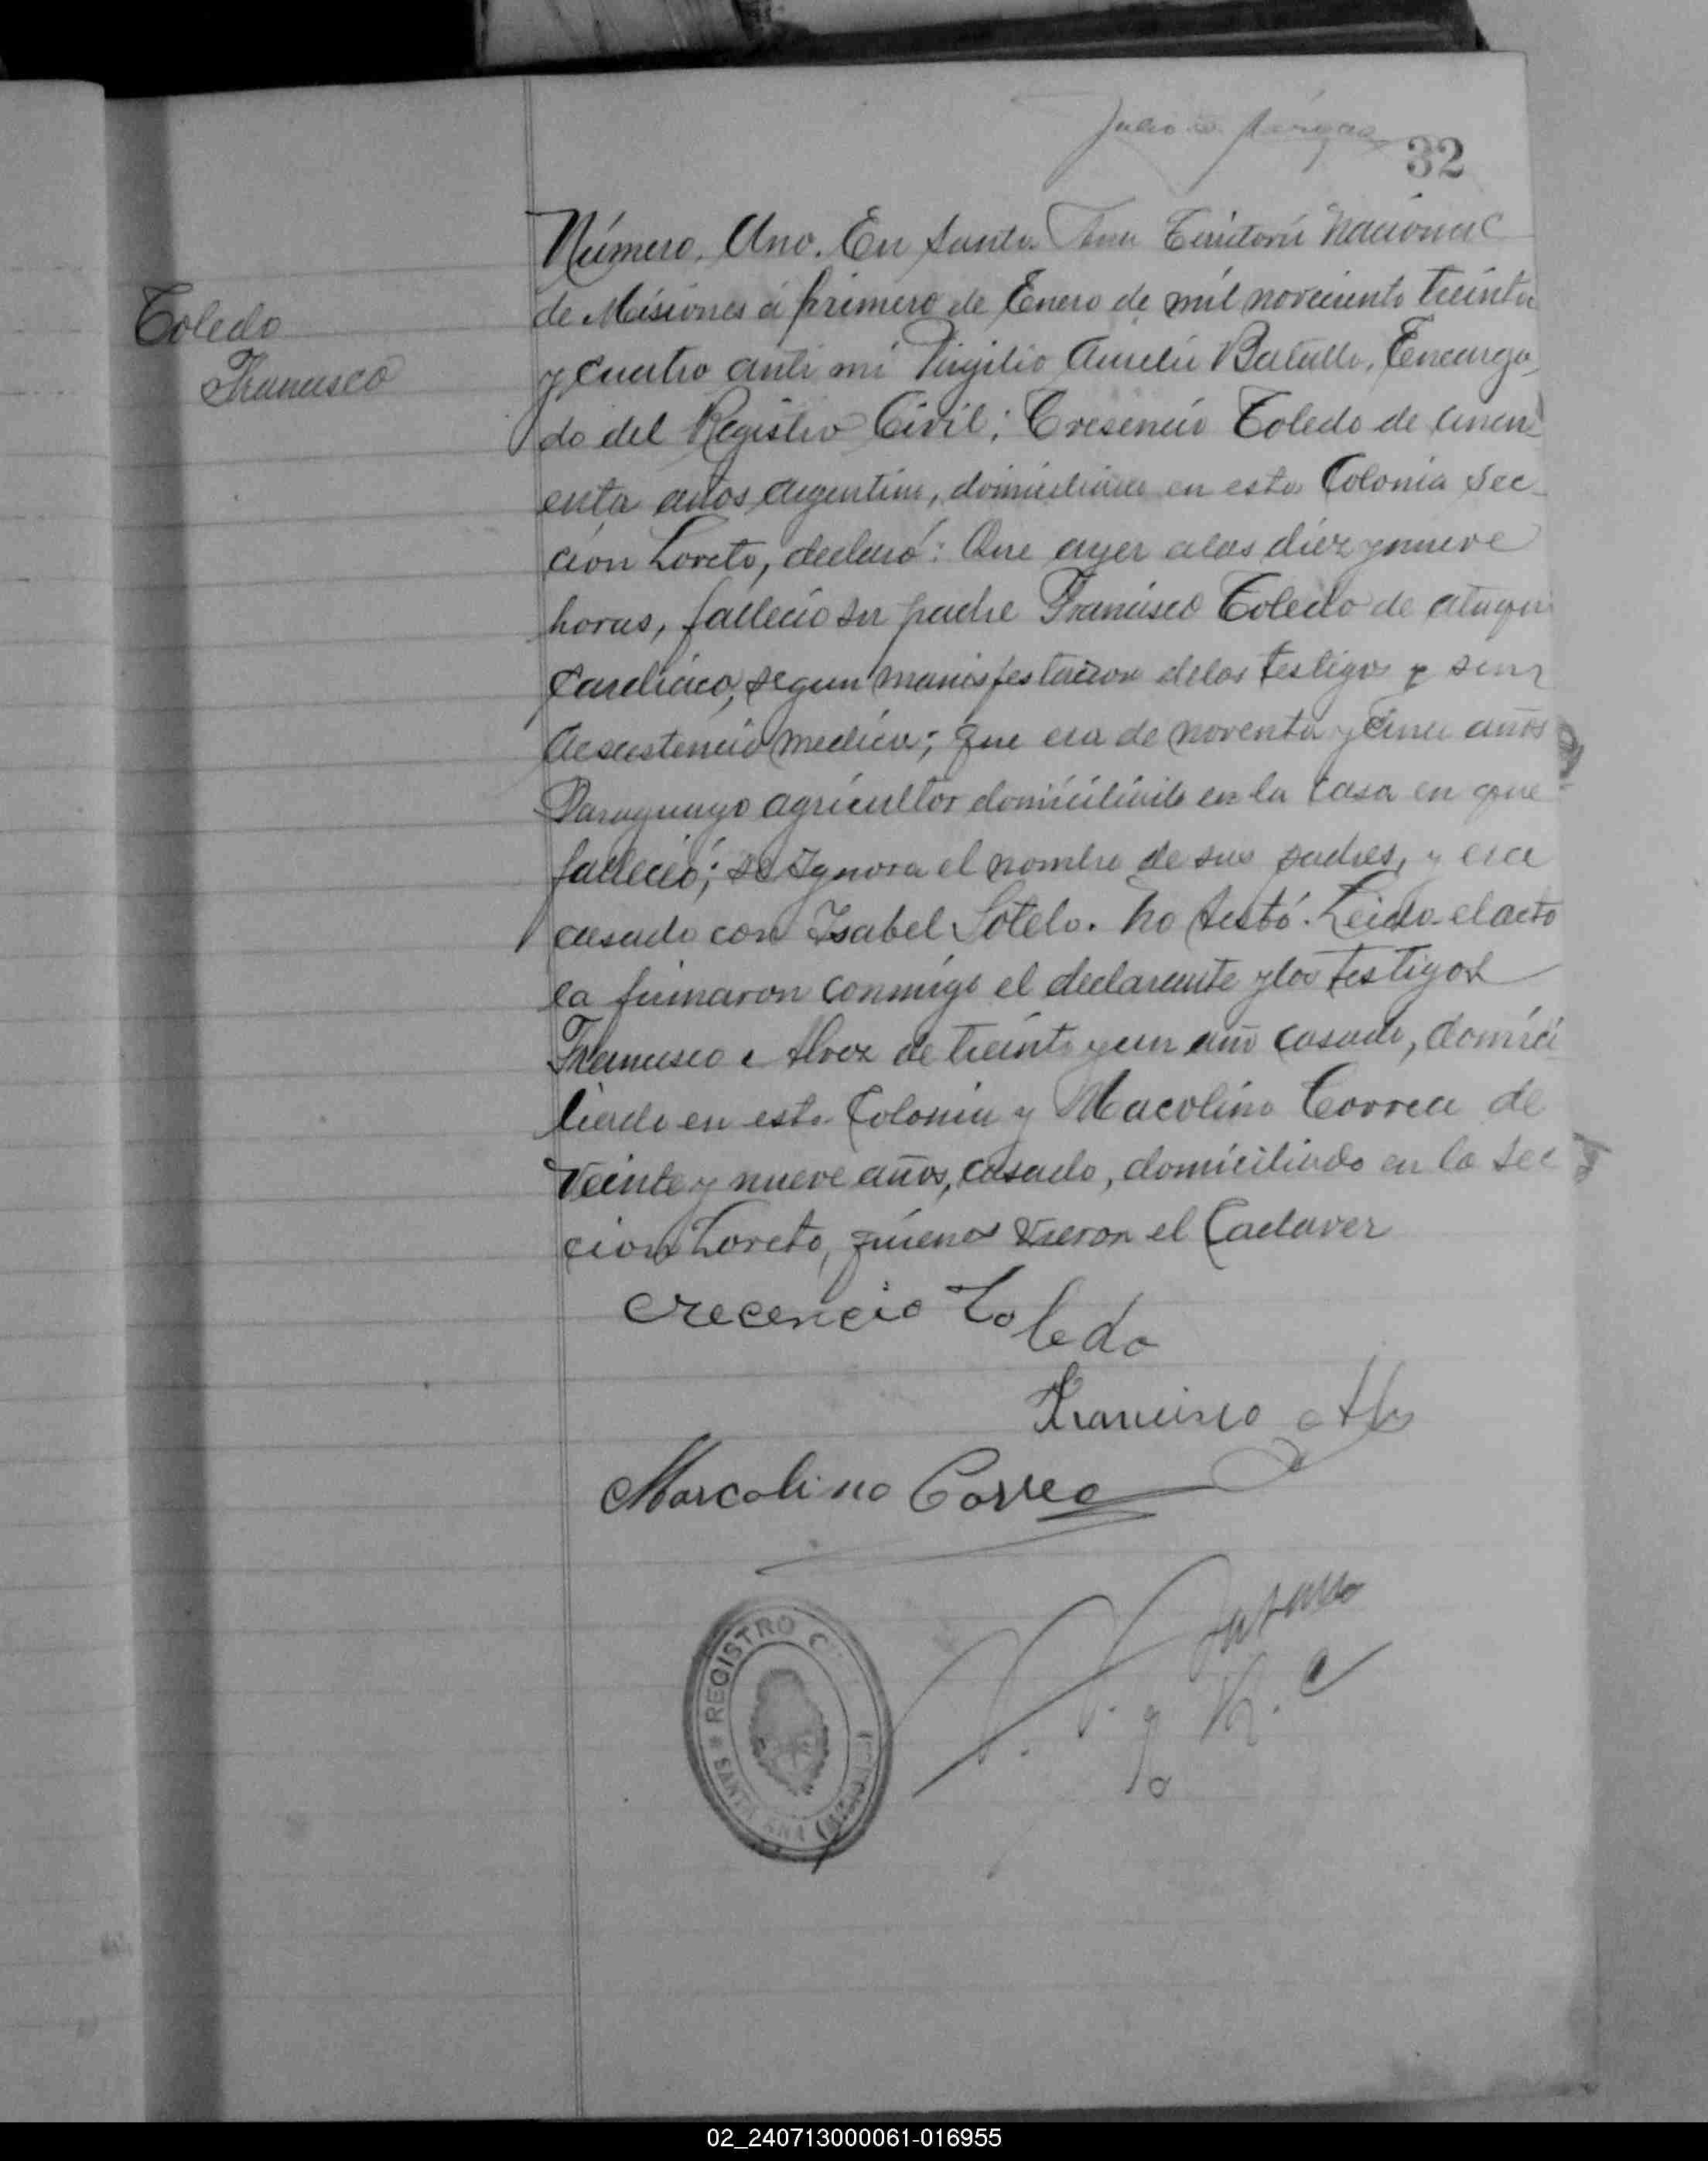 32
Toledo
Francisco
Número. Uno. En Santa Ana Territorio Nacional
de Misiones á primero de Enero de mil noveciento treinta
y cuatro ante mi Virgilio Aurelio Batalla, Encarga-
do del Registro Civil; Cresencio Toledo de cincu
enta años argentino, domiciliado en esta Colonia Sec-
cion Loreto, declaró: Que ayer alas diez y nueve
horas, fallecio su padre Francisco Toledo de ataque
Cardiaco, segun manisfestacion delos testigos y sin
Acsistencia medica; que era de noventa y cinco años
Paraguayo agricultor domiciliado en la casa en que
falleció; se ignora el nombre de sus padres, y era
casado con Isabel Sotelo. No testó. Leida el acta
la firmaron conmigo el declarante y los testigos
Francisco Alvez de treinta y un año casado, domici
liado en esta Colonia y Macolino Correa de
veinte y nueve años, casado, domiciliado en la Sec
cion Loreto, quienes vieron el Cadaver
Crecencio Toledo
Francisco
Marcolino Correa
REGISTRO C
SANTA ANA (MISIONES)
02_240713000061-016955